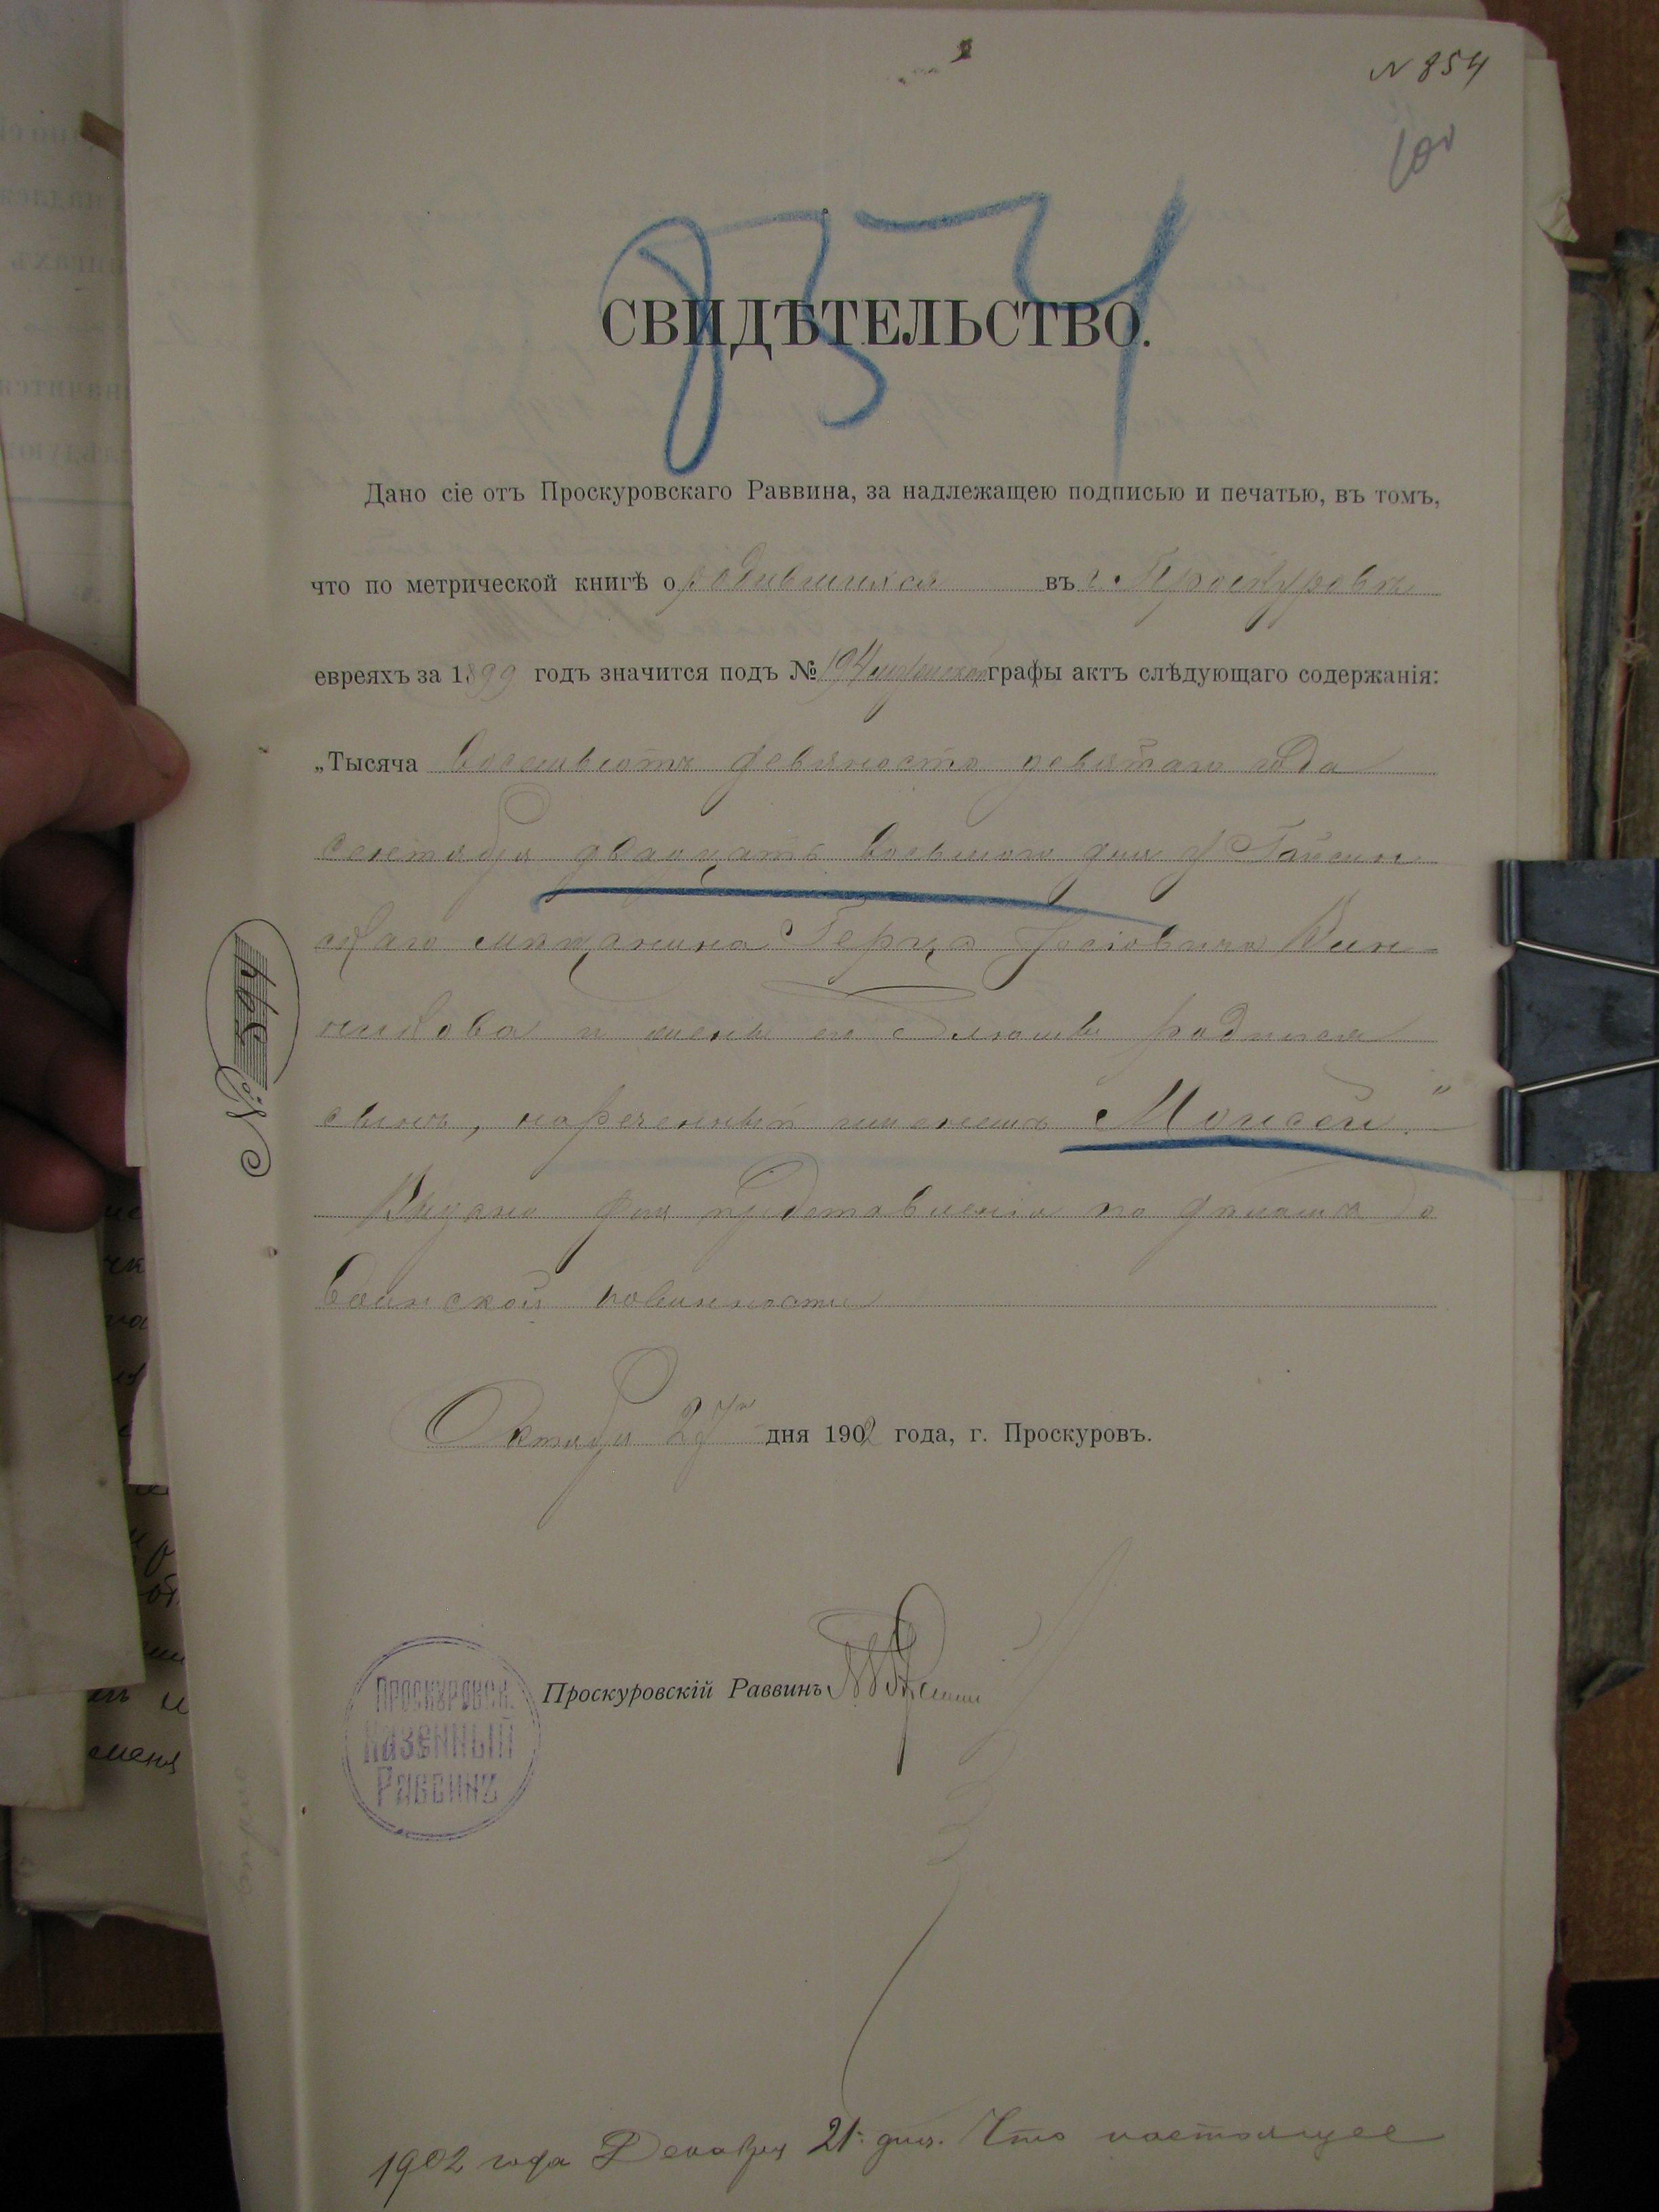 N 854
100
854
СВИДѢТЕЛЬСТВО.
Дано сіе отъ Проскуровскаго Раввина, за надлежащею подписью и печатью, въ томъ,
что по метрической книгѣ о родившихся въ г. Проскуровѣ
евреяхъ за 1899 годъ значится подъ № 194 мужской графы актъ слѣдующаго содержанія:
„Тысяча восемьсотъ девяносто девятаго года
сентября двадцать восьмого дня у Гайсин
скаго мѣщанина Герца Іосіовича Вин-
никова и жены его родился
сынъ, нареченный именемъ Моисей."
Выдано для представленія по дѣламъ о
воинской повинности
Октября 27го дня 1902 года, г. Проскуровъ.
Проскуровскій Раввинъ
ПРОСКУРОВСК.
КАЗЕННЫЙ
РАВВИНЪ
№
1902 года Декабря 21 дня. Что настоящее